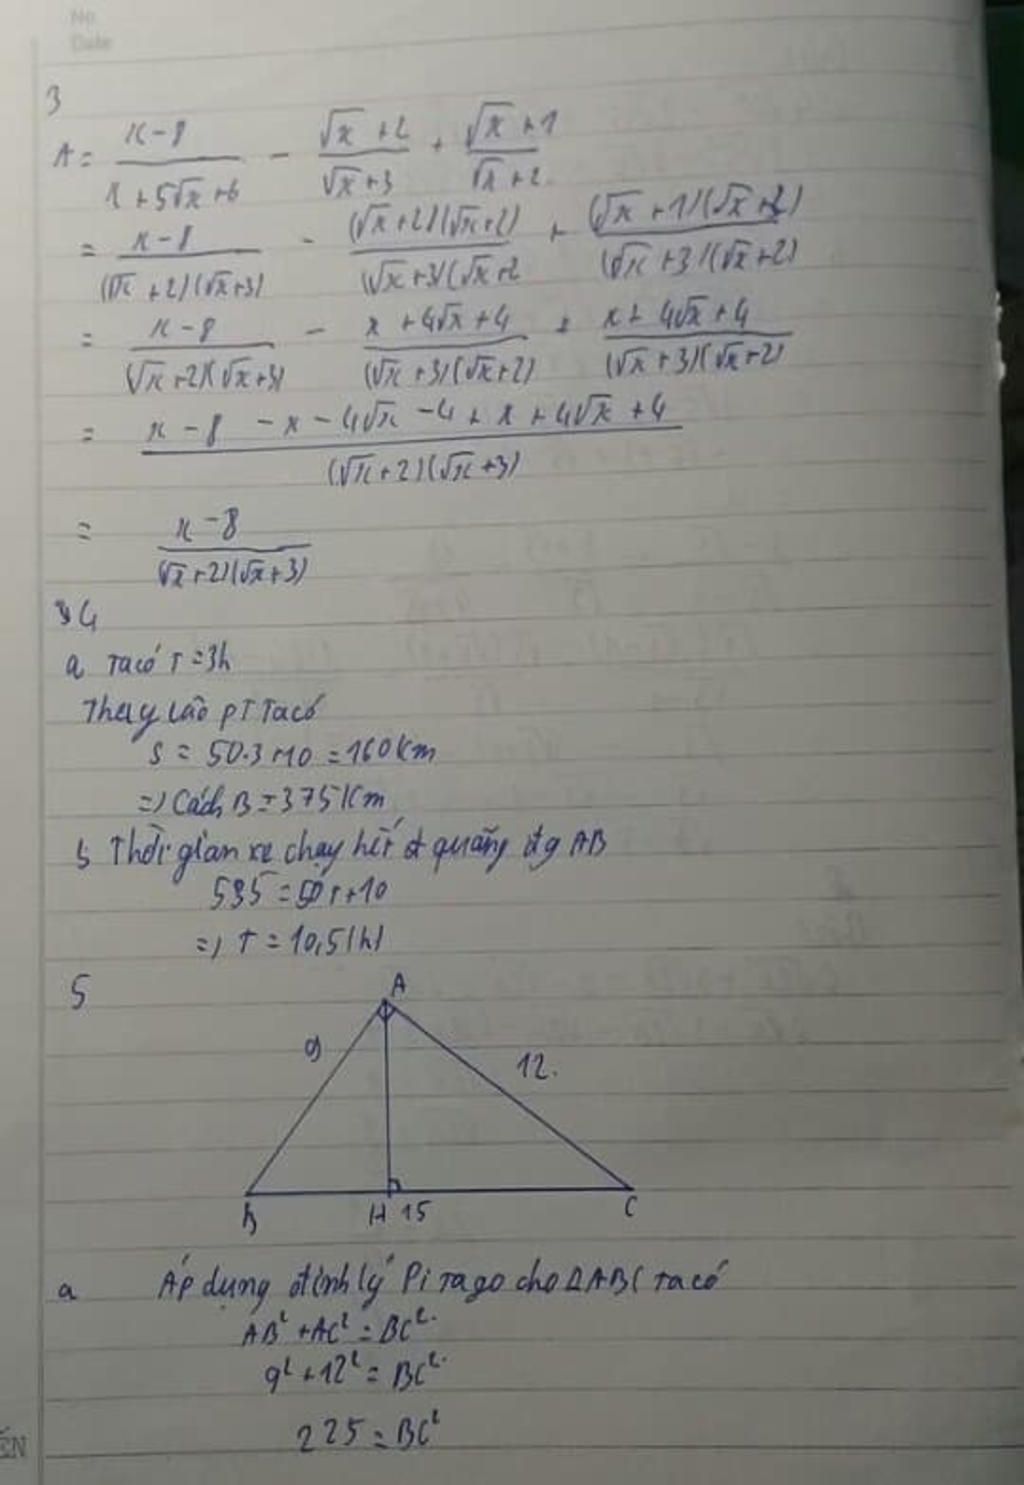 No.
Date
3
A = \frac{x-8}{x+5\sqrt{x}+6} - \frac{\sqrt{x}+2}{\sqrt{x}+3} + \frac{\sqrt{x}+1}{\sqrt{x}+2}
= \frac{x-8}{(\sqrt{x}+2)(\sqrt{x}+3)} - \frac{(\sqrt{x}+2)(\sqrt{x}+2)}{(\sqrt{x}+3)(\sqrt{x}+2} + \frac{(\sqrt{x}+1)(\sqrt{x}+2)}{(\sqrt{x}+3)(\sqrt{x}+2)}
= \frac{x-8}{(\sqrt{x}+2)(\sqrt{x}+3)} - \frac{x+4\sqrt{x}+4}{(\sqrt{x}+3)(\sqrt{x}+2)} + \frac{x+4\sqrt{x}+4}{(\sqrt{x}+3)(\sqrt{x}+2)}
= \frac{x-8-x-4\sqrt{x}-4+x+4\sqrt{x}+4}{(\sqrt{x}+2)(\sqrt{x}+3)}
= \frac{x-8}{(\sqrt{x}+2)(\sqrt{x}+3)}
4
a Ta có T = 3h
Thay vào PT Ta có
S = 50.3+10 = 160km
=) Cách B = 375 Km
b Thời gian xe chạy hết quãng đg AB
535 = 50T+10
=) T = 10,5(h)
5
A
9
12.
B H 15 C
a Áp dụng định lý Pi Tago cho ΔABC Ta có
AB² + AC² = BC².
9² + 12² = BC².
225 = BC²
ẾN